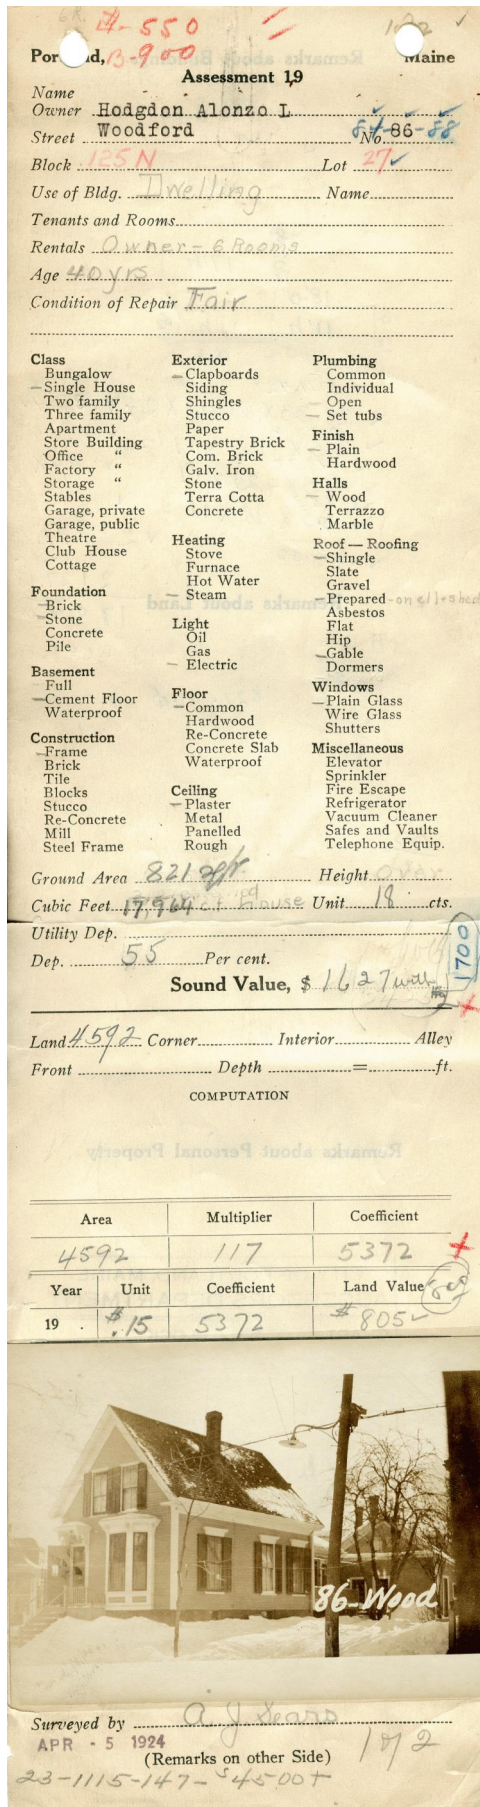 #-550
Portland, B-900 Maine
Assessment 19
Name
Owner Hodgdon Alonzo L
Street Woodford No. 84-86-88
Block 125N Lot 27
Use of Bldg. Dwelling Name
Tenants and Rooms
Rentals Owner - 6 Rooms
Age 40 yrs
Condition of Repair Fair
Class
Bungalow
Single House
Two family
Three family
Apartment
Store Building
Office "
Factory "
Storage "
Stables
Garage, private
Garage, public
Theatre
Club House
Cottage
Foundation
Brick
Stone
Concrete
Pile
Basement
Full
Cement Floor
Waterproof
Construction
Frame
Brick
Tile
Blocks
Stucco
Re-Concrete
Mill
Steel Frame
Exterior
Clapboards
Siding
Shingles
Stucco
Paper
Tapestry Brick
Com. Brick
Galv. Iron
Stone
Terra Cotta
Concrete
Heating
Stove
Furnace
Hot Water
Steam
Light
Oil
Gas
Electric
Floor
Common
Hardwood
Re-Concrete
Concrete Slab
Waterproof
Ceiling
Plaster
Metal
Panelled
Rough
Plumbing
Common
Individual
Open
Set tubs
Finish
Plain
Hardwood
Halls
Wood
Terrazzo
Marble
Roof — Roofing
Shingle
Slate
Gravel
Prepared - on ell + shed
Asbestos
Flat
Hip
Gable
Dormers
Windows
Plain Glass
Wire Glass
Shutters
Miscellaneous
Elevator
Sprinkler
Fire Escape
Refrigerator
Vacuum Cleaner
Safes and Vaults
Telephone Equip.
Ground Area 821 Height Over
Cubic Feet 17,964 House Unit 18 cts.
Utility Dep.
Dep. 55 Per cent.
1700
Sound Value, $ 1627 with
Land 4592 Corner Interior Alley
Front Depth = ft.
COMPUTATION
Area Multiplier Coefficient
4592 117 5372
Year Unit Coefficient Land Value
19 . $.15 5372 $805
86-Wood
Surveyed by A J Sears
APR - 5 1924
(Remarks on other Side) 1 of 2
23-1115-147-$4500+